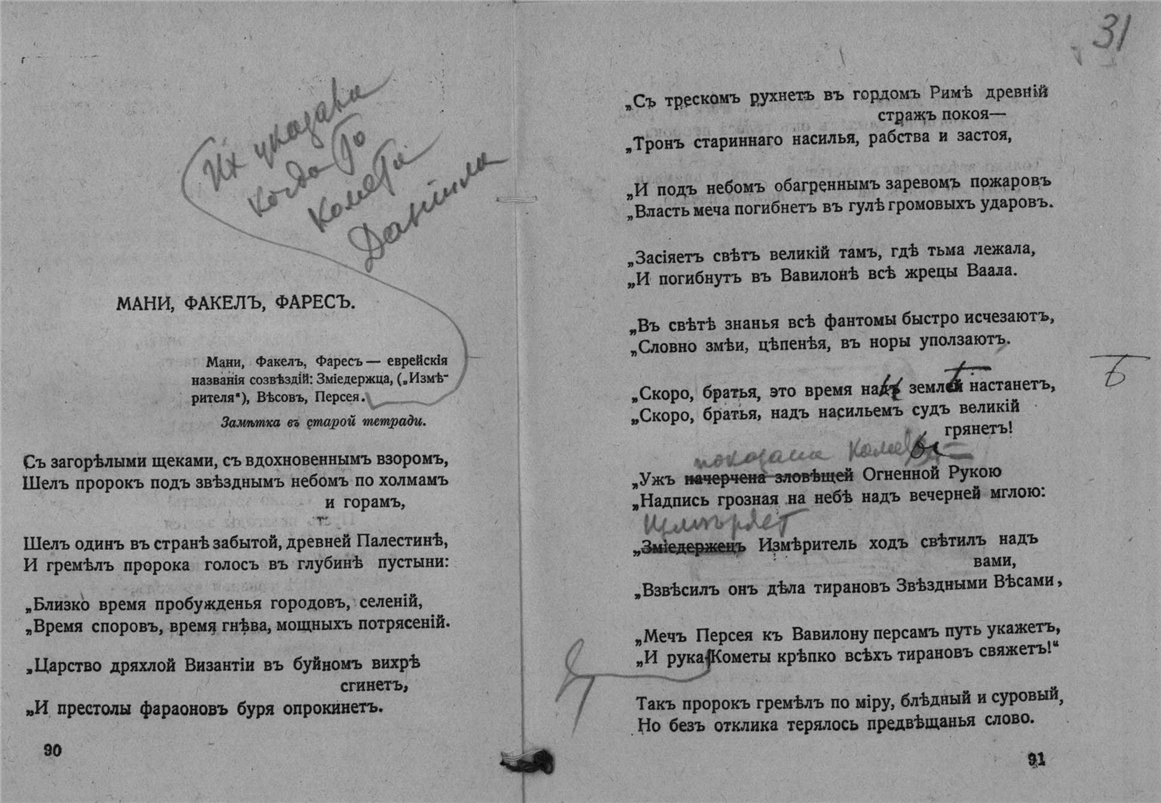 Их указала
когда то
комета
Даніила
МАНИ, ФАКЕЛЪ, ФАРЕСЪ.
Мани, Факелъ, Фаресъ — еврейскія
названія созвѣздій: Зміедержца, („Измѣ-
рителя“), Вѣсовъ, Персея.
Замѣтка въ старой тетради.
Съ загорѣлыми щеками, съ вдохновеннымъ взоромъ,
Шелъ пророкъ подъ звѣзднымъ небомъ по холмамъ
и горамъ,
Шелъ одинъ въ странѣ забытой, древней Палестинѣ,
И гремѣлъ пророка голосъ въ глубинѣ пустыни:
„Близко время пробужденья городовъ, селеній,
„Время споровъ, время гнѣва, мощныхъ потрясеній.
„Царство дряхлой Византіи въ буйномъ вихрѣ
сгинетъ,
„И престолы фараоновъ буря опрокинетъ.
90
31
„Съ трескомъ рухнетъ въ гордомъ Римѣ древній
стражъ покоя—
„Тронъ стариннаго насилья, рабства и застоя,
„И подъ небомъ обагреннымъ заревомъ пожаровъ
„Власть меча погибнетъ въ гулѣ громовыхъ ударовъ.
„Засіяетъ свѣтъ великій тамъ, гдѣ тьма лежала,
„И погибнутъ въ Вавилонѣ всѣ жрецы Ваала.
„Въ свѣтѣ знанья всѣ фантомы быстро исчезаютъ,
„Словно змѣи, цѣпенѣя, въ норы уползаютъ.
„Скоро, братья, это время надъ землей настанетъ,
„Скоро, братья, надъ насильемъ судъ великій
грянетъ!
показана Кометы
„Ужъ начерчена зловѣщей Огненной Рукою
„Надпись грозная на небѣ надъ вечерней мглою:
Измѣряетъ
„Зміедержецъ Измѣритель ходъ свѣтилъ надъ
вами,
„Взвѣсилъ онъ дѣла тирановъ Звѣздными Вѣсами,
„Мечъ Персея къ Вавилону персамъ путь укажетъ,
„И рука Кометы крѣпко всѣхъ тирановъ свяжетъ!“
Такъ пророкъ гремѣлъ по міру, блѣдный и суровый,
Но безъ отклика терялось предвѣщанья слово.
91